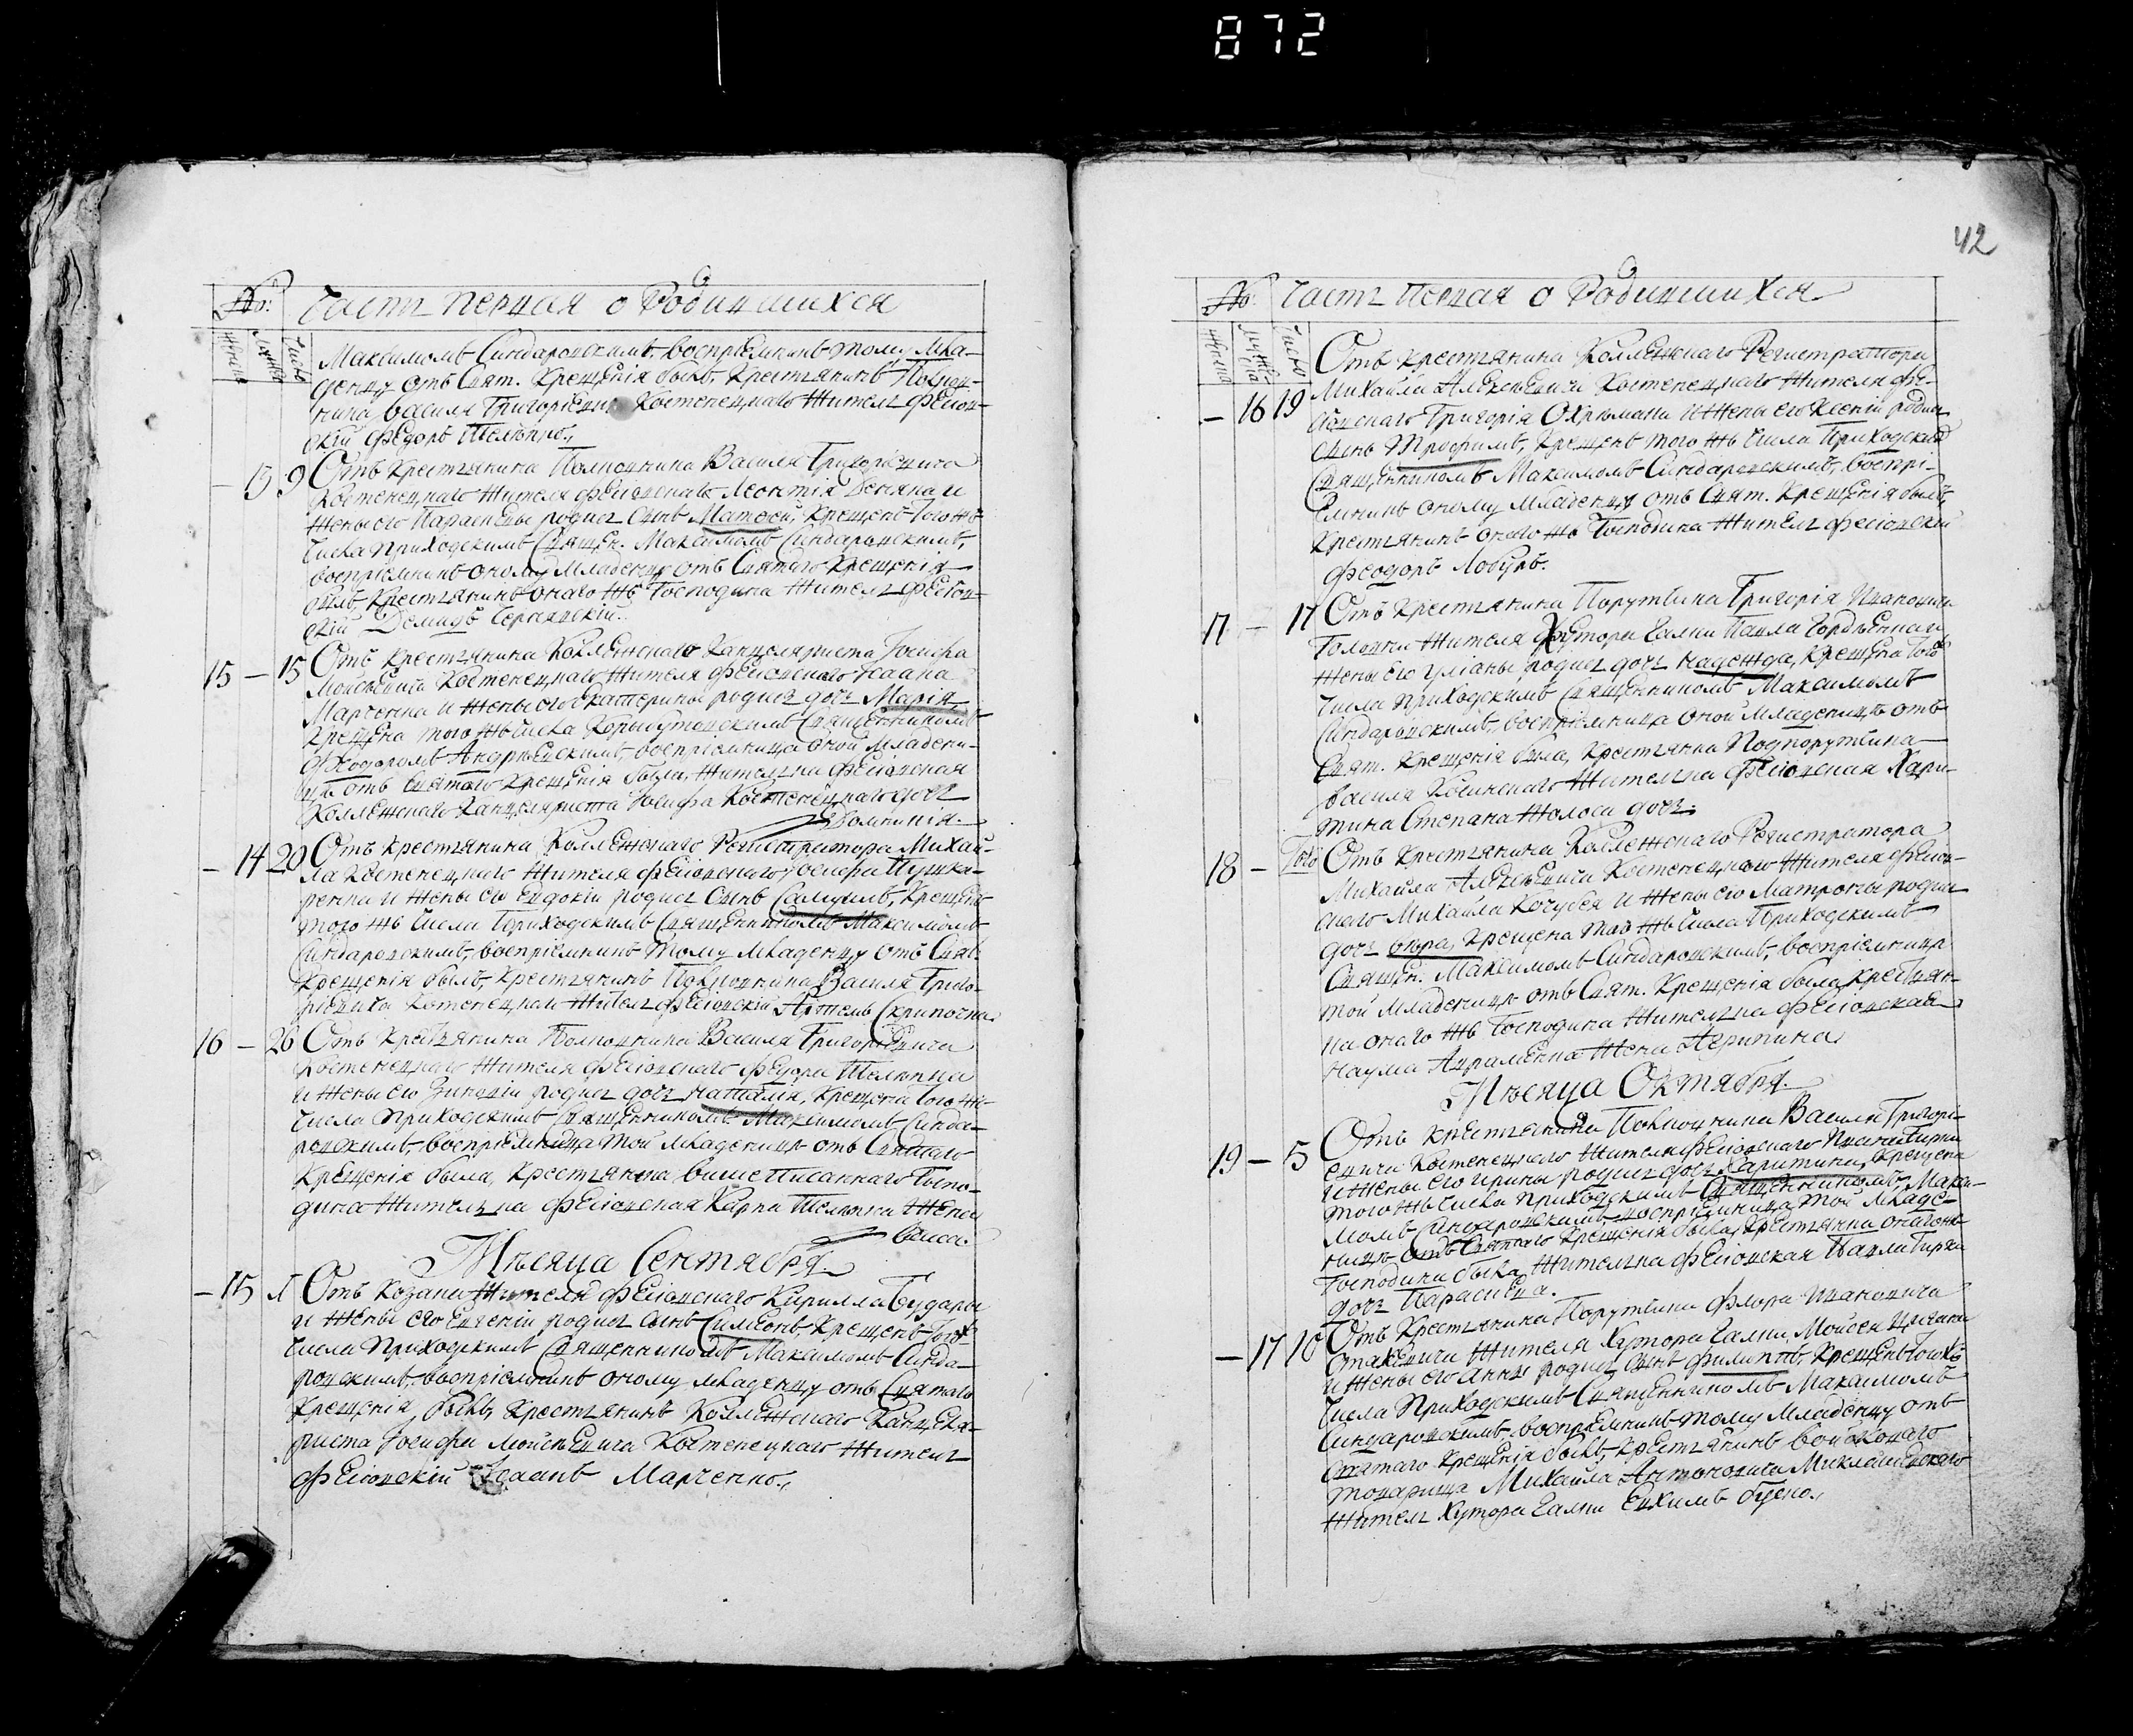 872
№: Часть первая о Родившихся
женска
мужес
число
Максимомъ Синдаровскимъ, восприемникъ тому мла-
денцу отъ Свят. Крещенія былъ, Крестьянинъ Полков-
ника Василя Григоріевича Костенецкаго житель Фесюв-
скій Федоръ
– 13 9 Отъ Крестьянина Полковника Василя Григоріевича
Костенецкаго жителя Фесювскаго Леонтія и
жены его Параскевы родися сынъ Матфей, крещенъ того жъ
числа приходскимъ Священ. Максимомъ Синдаровскимъ,
восприемникъ оному младенцу отъ Святаго Крещенія
былъ, Крестьянинъ онаго жъ Господина житель Фесюв-
скій Демидъ
15 – 15 Отъ Крестьянина Коллежскаго Канцеляриста Іосифа
Мойсѣевича Костенецкаго жителя Фесювскаго Іоанна
Марченка и жены его Екатерины родися дочь Марія
крещена того жъ числа Священникомъ
Феодоромъ Андріевскимъ, восприемница оной младени-
цѣ отъ Святаго Крещенія была, жителька Фесювская
Коллежскаго Канцеляриста Іосифа Костенецкаго дочь
Домникія.
– 14 20 Отъ Крестьянина Коллежскаго Регистратора Михай-
ла Костенецкаго жителя Фесювскаго Іосифа Пушка-
ренка и жены его Евдокіи родися сынъ Самуилъ, крещенъ
того жъ числа Приходскимъ Священникомъ Максимомъ
Синдаровскимъ, восприемникъ тому младенцу отъ Свят:
Крещенія былъ, Крестьянинъ Полковника Василя Григо-
ріевича Костенецкаго житель Фесювскій Скрипочка
16 – 26 Отъ Крестьянина Полковника Василя Григоріевича
Костенецкаго жителя Фесювскаго Федора
и жены его Зиновіи родися дочь Наталія, крещена того жъ
числа Приходскимъ Священникомъ Максимомъ Синда-
ровскимъ, восприемница той младеницѣ отъ Святаго
Крещенія была, Крестьянка вишеписаннаго Госпо-
дина жителька Фесювская Карпа жена
Мѣсяца Сентября
– 15 Отъ Козака жителя Фесювскаго Кирилла Будары
и жены его Евгеніи родися сынъ Симеонъ, крещенъ того жъ
числа Приходскимъ Священникомъ Максимомъ Синда-
ровскимъ, восприемникъ оному младенцу отъ Святаго
Крещенія былъ, Крестьянинъ Коллежскаго Канцеля-
риста Іосифа Мойсѣевича Костенецкаго житель
Фесювскій Іоаннъ Марченко.
42
№: Часть Первая о Родившихся
женска
мужеска
число
Отъ Крестьянина Коллежскаго Регистратора
Михайла Алексѣевича Костенецкаго жителя Фе-
– 16 19 сювскаго Григорія Охрѣмана и жены его Ксеніи родися
сынъ Трофимъ, крещенъ того жъ числа Приходским
Священникомъ Максимомъ Синдаровскимъ, воспрі-
емникъ оному младенцу отъ Свят. Крещенія былъ,
Крестьянинъ онаго жъ Господина житель Фесювскій
Феодоръ Лобуръ.
17 – 17 Отъ Крестьянина Порутчика Григорія Ивановича
жителя Хутора Галки Павла Гордѣенка и
жены его Уліаны родися дочь Надежда, крещена того
числа приходскимъ Священникомъ Максимомъ
Синдаровскимъ, восприемница оной младеницѣ отъ
Свят. Крещенія была, Крестьянка Подпорутчика
Василя жителька Фесювская Хари-
тина Степана дочь.
18 – Того Отъ Крестьянина Коллежскаго Регистратора
Михайла Алексѣевича Костенецкаго жителя Фесюв-
скаго Михайла Кочубея и жены его Матроны родися
дочь Фекла, крещена того жъ числа Приходскимъ
Священ. Максимомъ Синдаровскимъ, воспріемница
той младеницѣ отъ Свят. Крещенія была, Крестьян-
ка онаго жъ Господина жителька Фесювская
Наума Авраменка жена Агрипина
Мѣсяца Октября
19 – 5 Отъ Крестьянина Полковника Василя Григорі-
евича Костенецкаго жителя Фесювскаго Ивана
и жены его Ирины родися дочь Харитина, крещена
того жъ числа приходскимъ Священникомъ Макси-
момъ Синдаровскимъ, восприемница той младе-
ницѣ отъ Святаго Крещенія была, Крестьянка онаго жъ
Господина была, жителька Фесювская Павла
дочь Параскева.
– 17 10 Отъ Крестьянина Порутчика Флора Ивановича
жителя Хутора Галки, Мойсея Цигана
и жены его Анны родися сынъ Филиппъ, крещенъ того жъ
числа Приходскимъ Священникомъ Максимомъ
Синдаровскимъ, восприемникъ тому младенцу отъ
Святаго Крещенія былъ, Крестьянинъ Войсковаго
товарища Михайла Антоновича Миклашевскаго
житель Хутора Галки Евхимъ